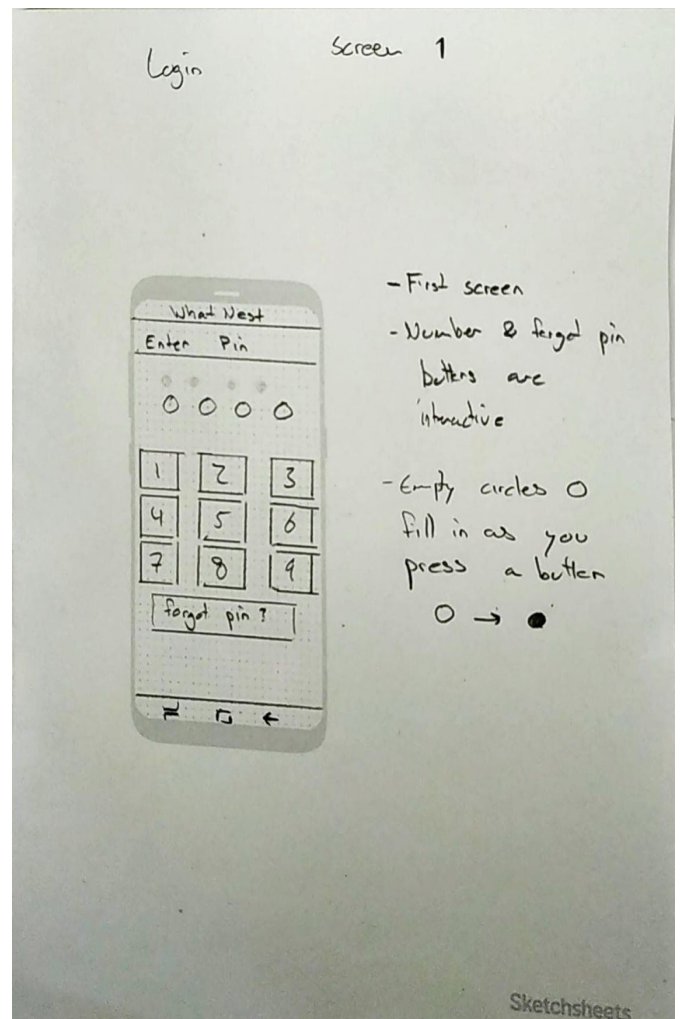 Login
Screen 1
What Nest
Enter Pin
1 2 3
4 5 6
7 8 9
forgot pin ?
- First screen
- Number & forgot pin
buttons are
interactive
- Empty circles O
fill in as you
press a button
O → ●
Sketchsheets